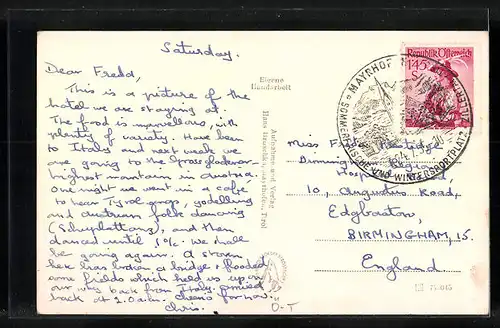 Saturday.
Dear Fredd,
This is a picture of the
hotel we are staying at.
The food is marvellous, with
plenty of variety. Have been
to Italy and next week we
are going to the Grossglockner
highest mountain in Austria.
One night we went in a cafe
to hear Tyrol songs, yodelling
and austrian folk dancing
(Schuplattanz), and then
danced until 1 o/c. We shall
be going again. A storm
here has broken a bridge & flooded
some fields which held us up on
our way back from Italy. arrived
back at 2.0 a.m. Cheerio for now.
Chris.
Eigene
Handarbeit
Aufnahme und Verlag
Tirol
MAYRHOFEN
ZILLERTAL
SOMMERFRISCHE UND WINTERSPORTPLATZ
Republik Österreich
1.45
S
Miss
10, Augustus Road,
Edgbaston,
BIRMINGHAM, 15.
England
O-T